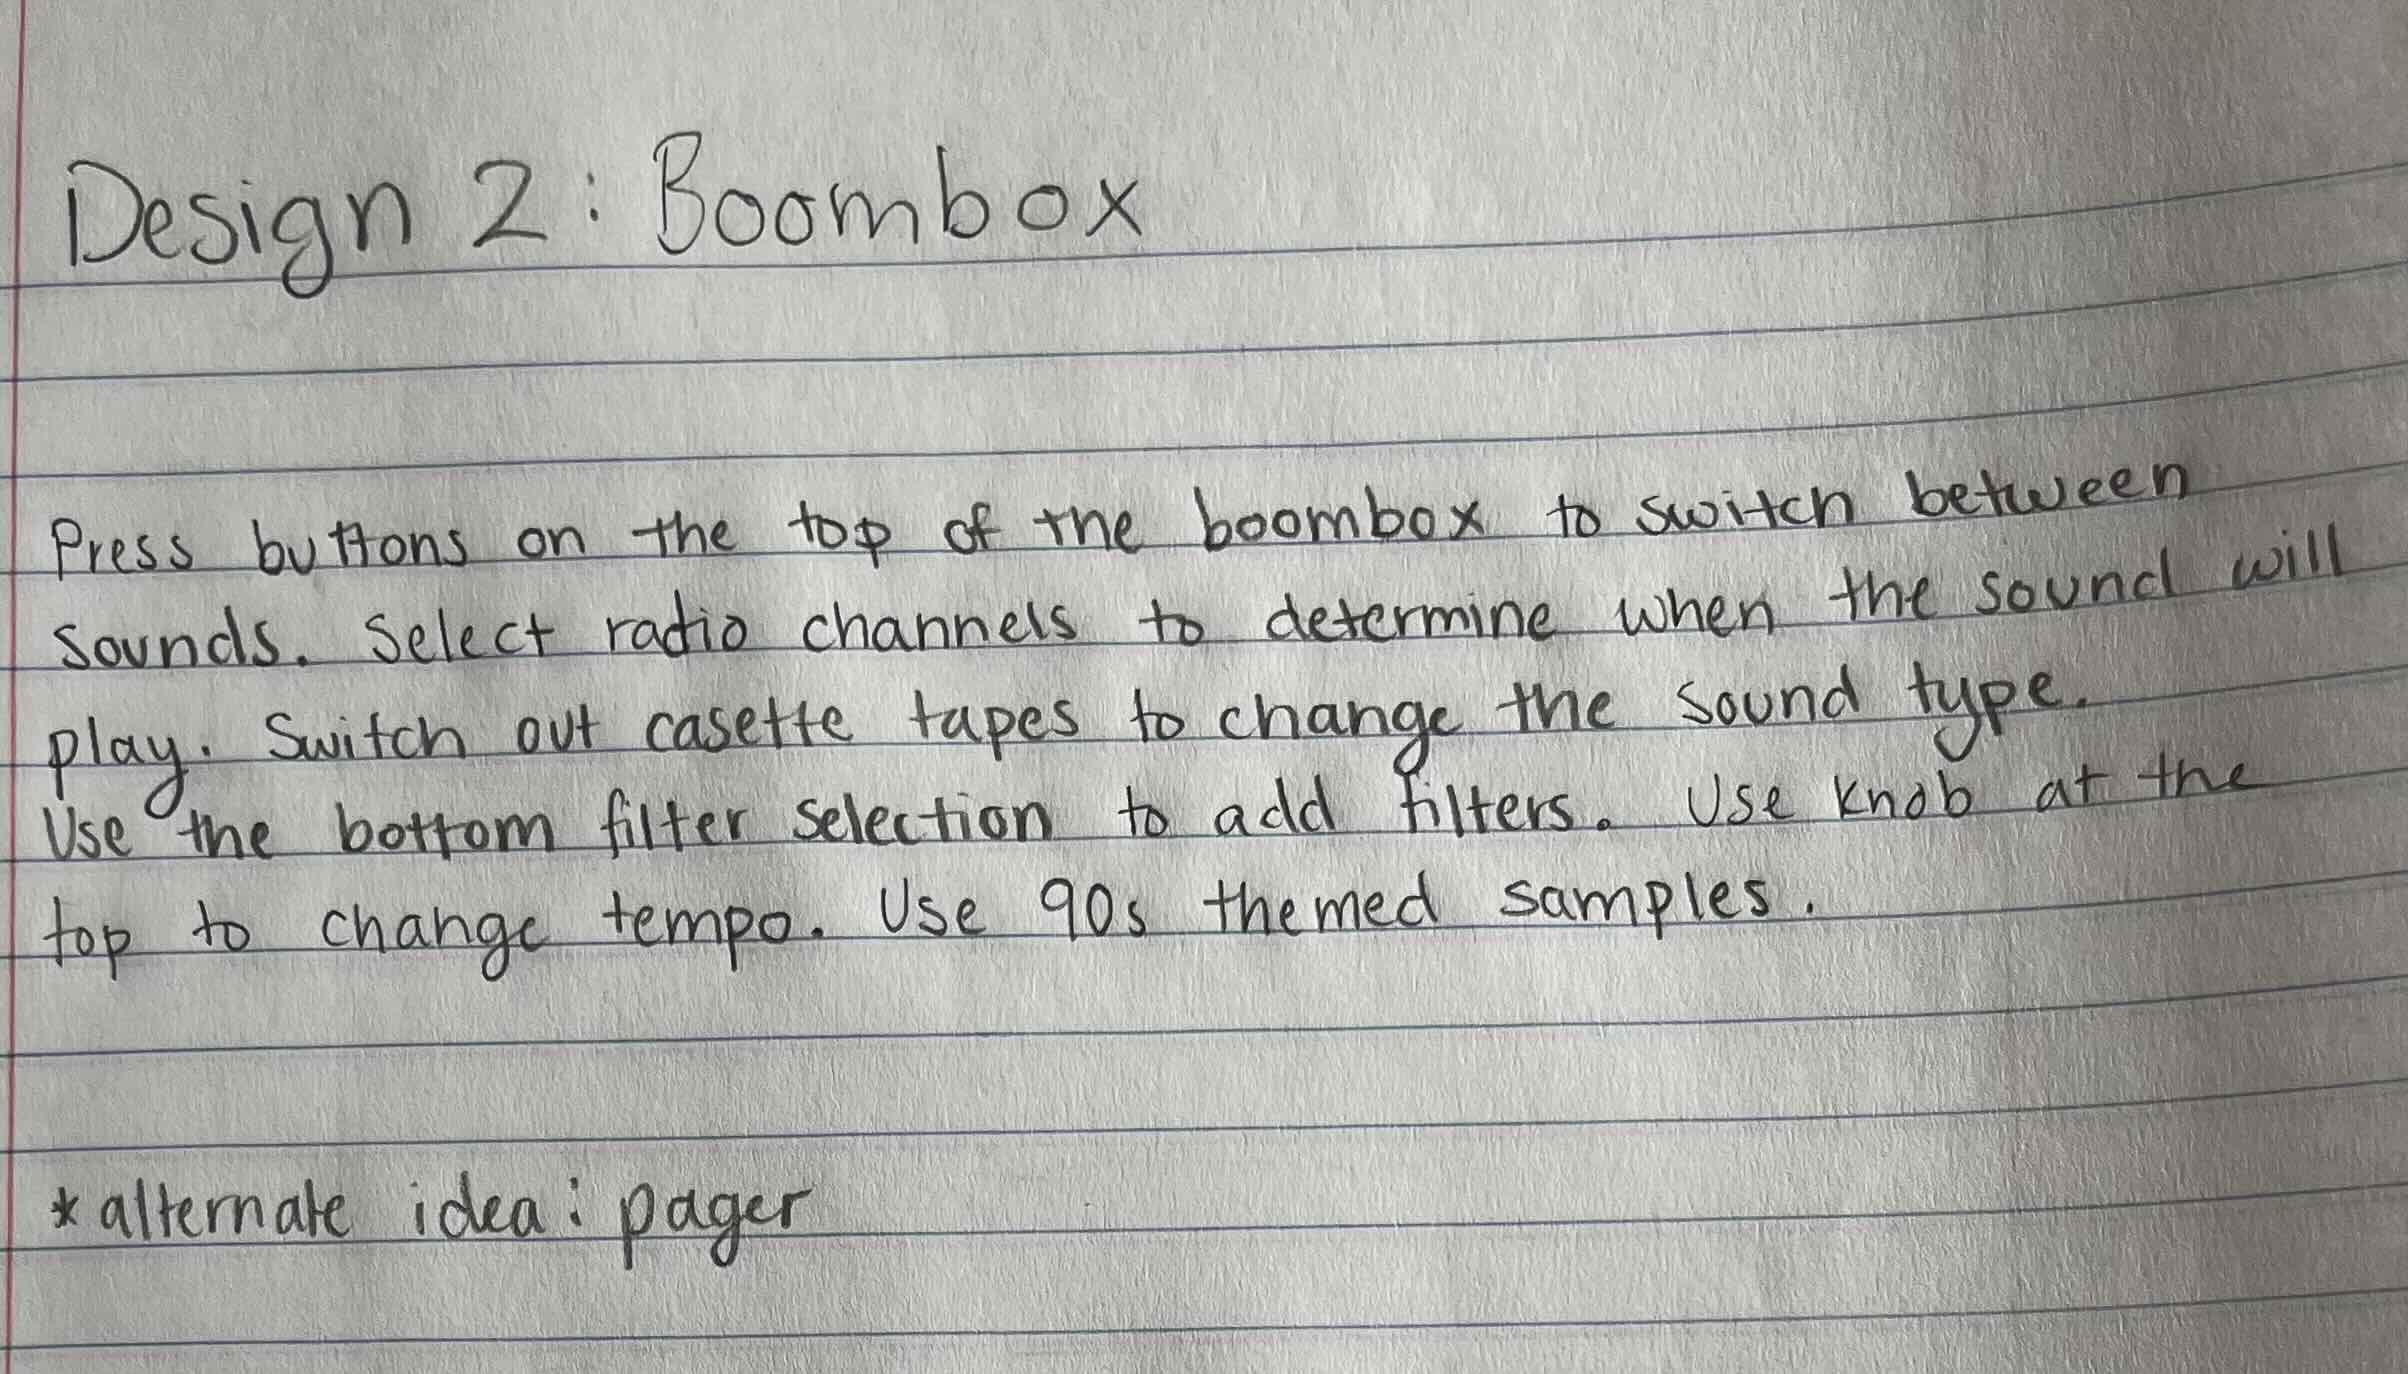 Design 2: Boombox
Press buttons on the top of the boombox to switch between
sounds. Select radio channels to determine when the sound will
play. Switch out casette tapes to change the sound type.
Use the bottom filter selection to add filters. Use knob at the
top to change tempo. Use 90s themed samples.
*alternate idea: pager